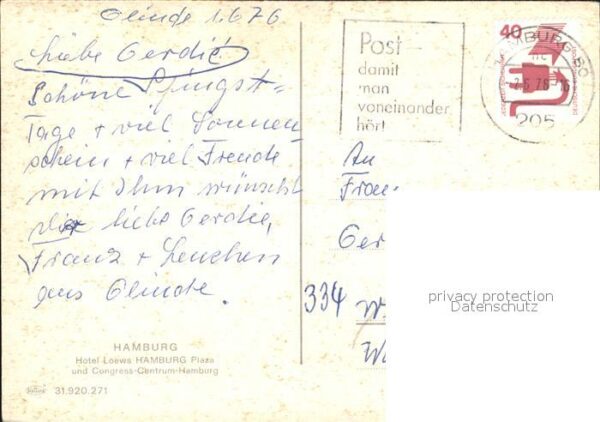 Glinde 1.6.76
Liebe Gerdie!
Schöne Pfingst-
Tage + viel Sonnen
schein + viel Freude
mit Ihm wünscht
Dir liebe Gerdie,
Franz + Lenchen
aus Glinde.
Post-
damit
man
voneinander
hört
40
HAMBURG 80
205
An
Frau
Ger
334
W
privacy protection
Datenschutz
HAMBURG
Hotel Loews HAMBURG Plaza
und Congress-Centrum-Hamburg
31.920.271